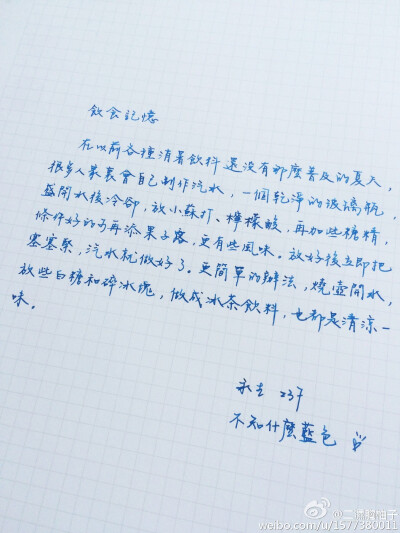 飲食記憶
在以前各種消暑飲料還没有那麼普及的夏天，
很多人家裏會自己制作汽水，一個乾淨的玻璃瓶，
盛開水後冷卻，放小蘇打、檸檬酸，再加些糖精，
條件好的可再添果子露，更有些風味。放好後立即把
塞塞緊，汽水就做好了。更簡單的辦法，燒壺開水，
放些白糖和碎冰塊，做成冰茶飲料，也都是清涼一
味。
永生 23F
不知什麼藍色
@二师醉柚子
weibo.com/u/1577380011